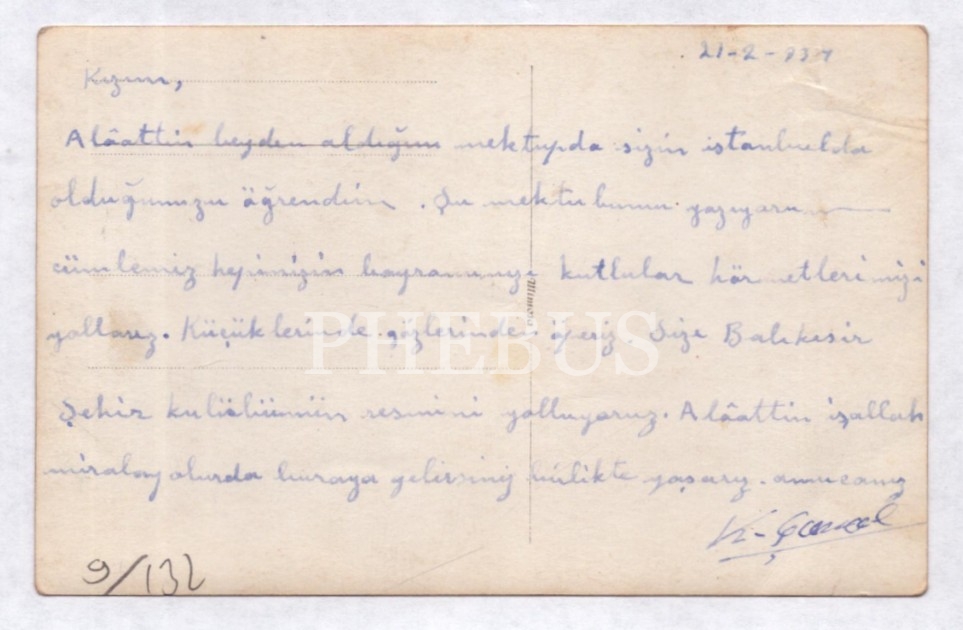 21-2-937
Kızım,
Alâattin beyden aldığım mektupda sizin istanbulda
olduğunuzu öğrendim. Şu mektubumu yazıyorum
cümlemiz hepinizin bayramınızı kutlular hörmetlerimizi
yollarız. Küçüklerinde gözlerinden öperiz Size Balıkesir
Şehir kulübünün resmini yolluyoruz. Alâattin işallah
miralay olurda buraya gelirsiniz birlikte yaşarız. amucanız
PHEBUS
9/132